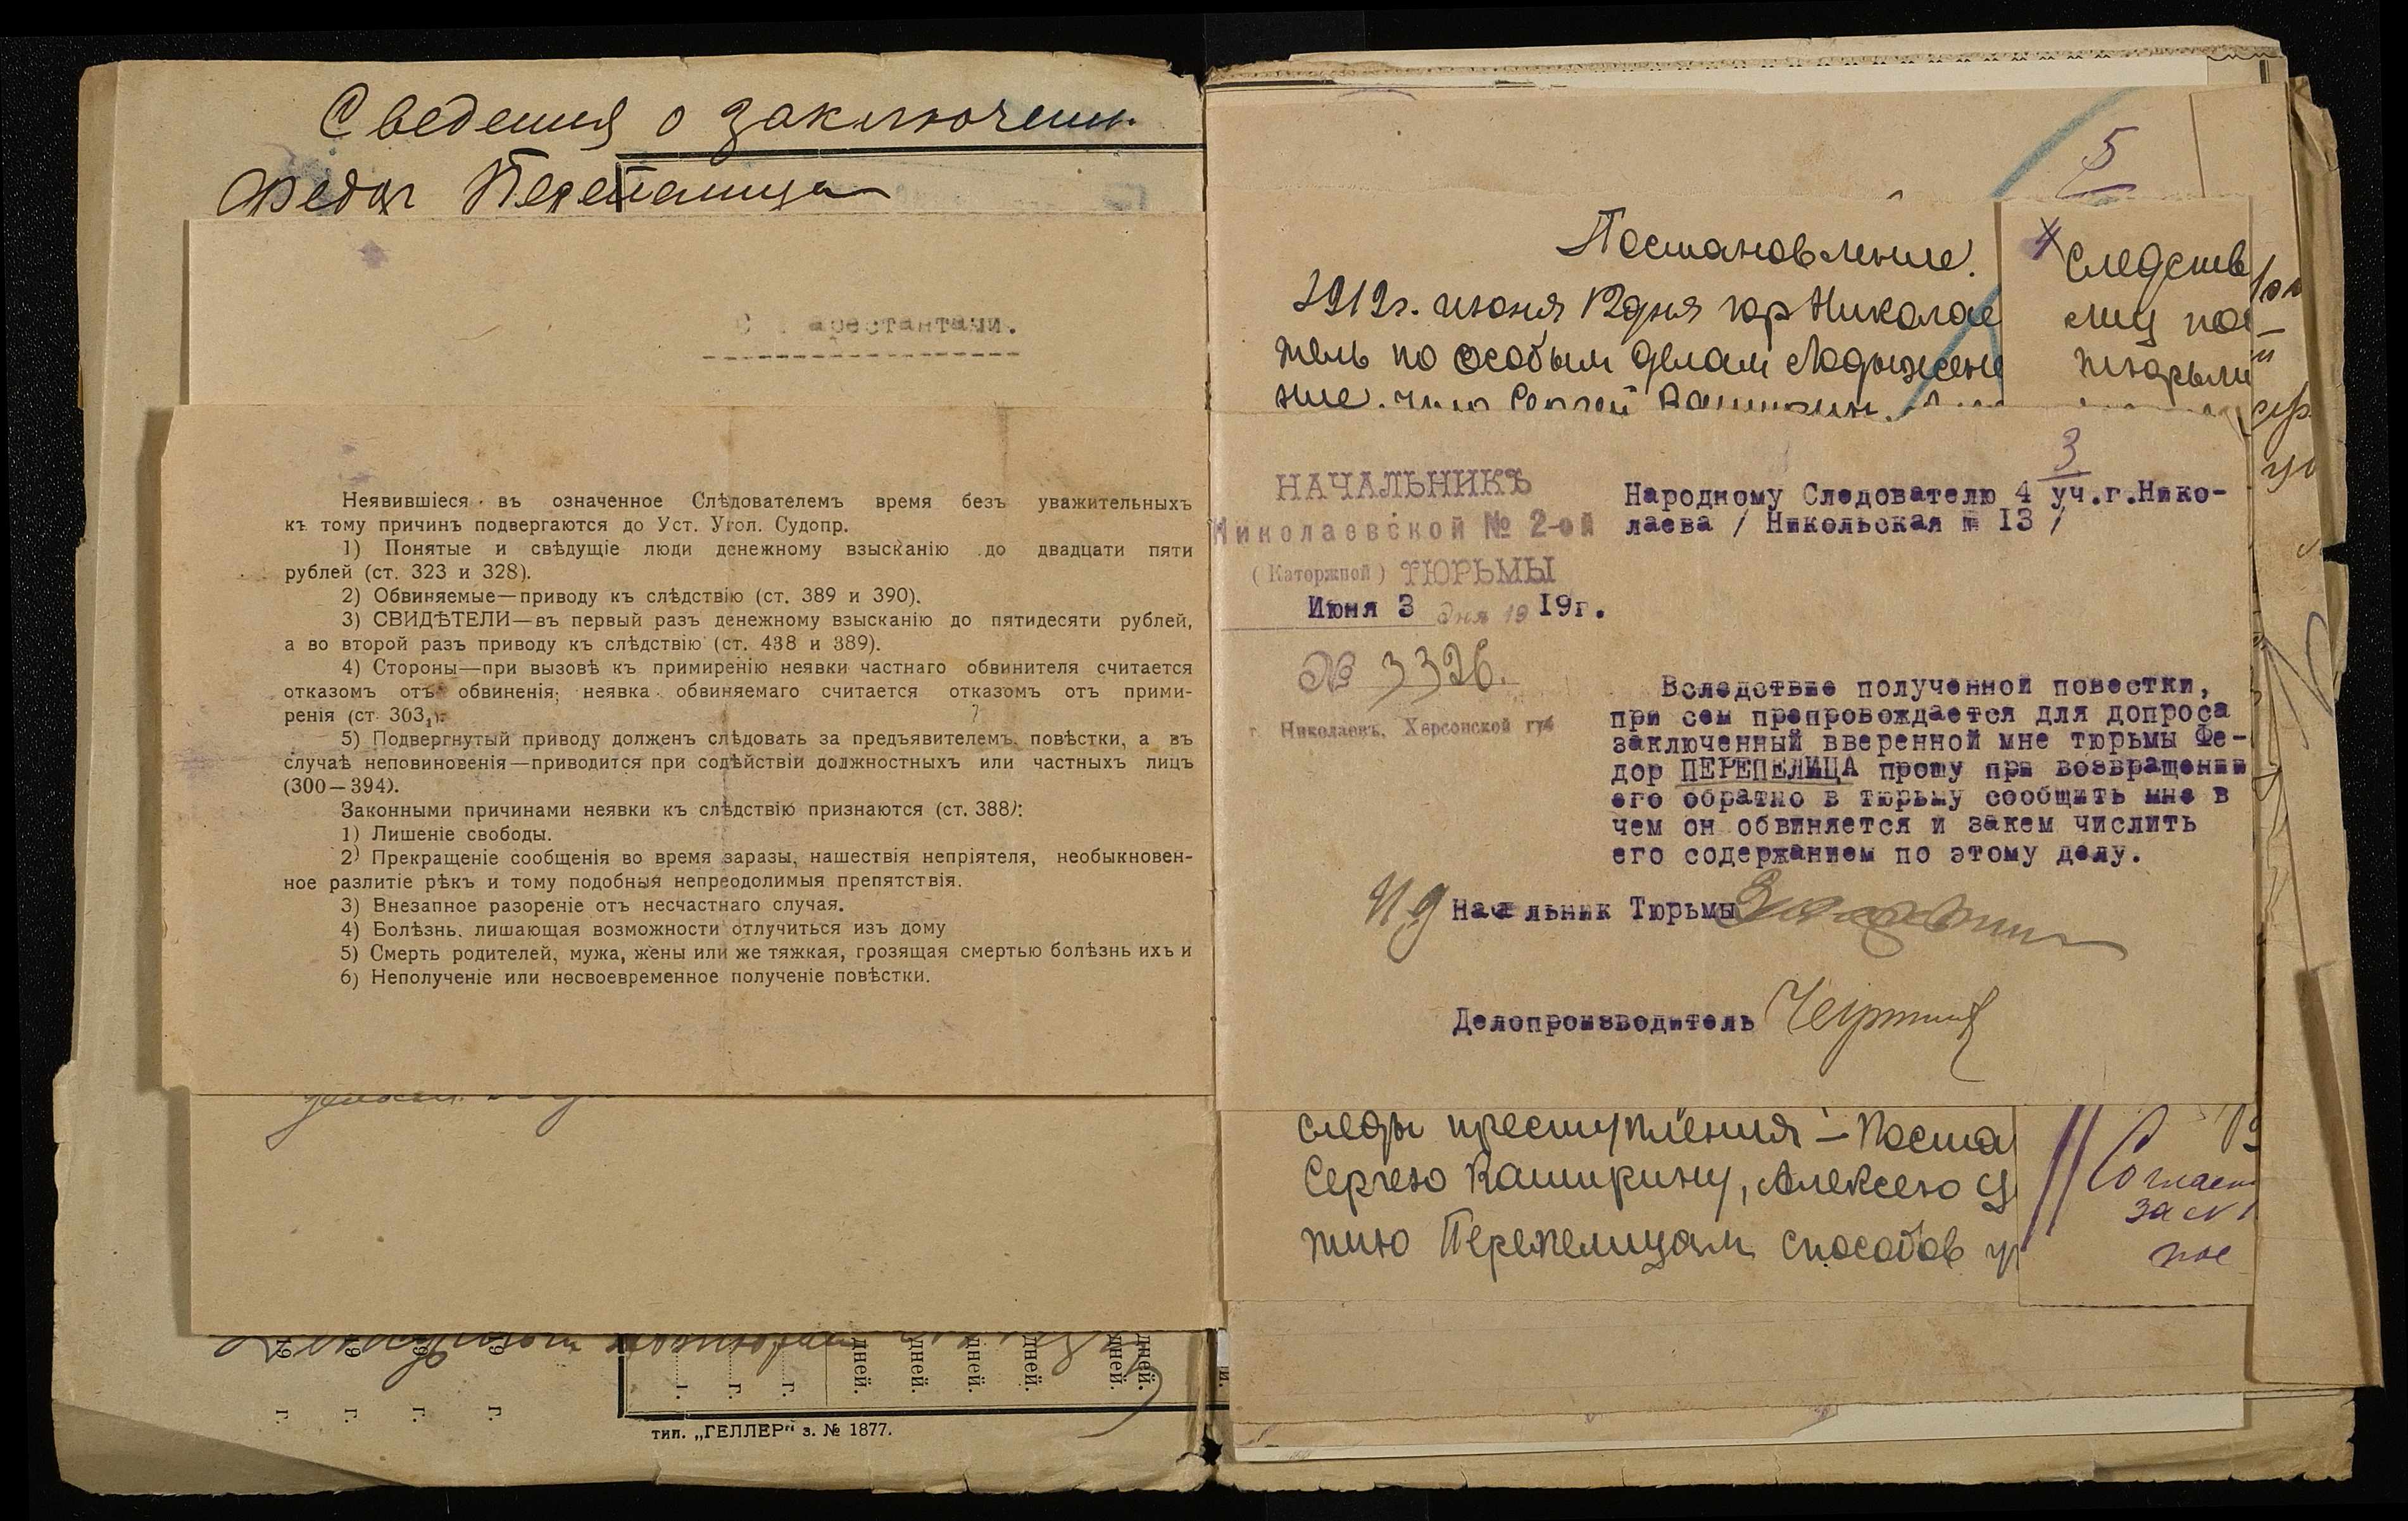 Сведения о заключени
Федор Перепелица
арестантами.
Неявившіеся въ означенное Слѣдователемъ время безъ уважительныхъ
къ тому причинъ подвергаются до Уст. Угол. Судопр.
1) Понятые и свѣдущіе люди денежному взысканію до двадцати пяти
рублей (ст. 323 и 328).
2) Обвиняемые—приводу къ слѣдствію (ст. 389 и 390).
3) СВИДѢТЕЛИ—въ первый разъ денежному взысканію до пятидесяти рублей,
а во второй разъ приводу къ слѣдствію (ст. 438 и 389).
4) Стороны—при вызовѣ къ примиренію неявки частнаго обвинителя считается
отказомъ отъ обвиненія; неявка обвиняемаго считается отказомъ отъ прими-
ренія (ст. 303₁).
5) Подвергнутый приводу долженъ слѣдовать за предъявителемъ повѣстки, а въ
случаѣ неповиновенія—приводится при содѣйствіи должностныхъ или частныхъ лицъ
(300—394).
Законными причинами неявки къ слѣдствію признаются (ст. 388):
1) Лишеніе свободы.
2) Прекращеніе сообщенія во время заразы, нашествія непріятеля, необыкновен-
ное разлитіе рѣкъ и тому подобныя непреодолимыя препятствія.
3) Внезапное разореніе отъ несчастнаго случая.
4) Болѣзнь, лишающая возможности отлучиться изъ дому
5) Смерть родителей, мужа, жены или же тяжкая, грозящая смертью болѣзнь ихъ и
6) Неполученіе или несвоевременное полученіе повѣстки.
19 19 19 19
г. г. г. г.
г. г. г. дней. дней. дней. дней. дней. дней.
тип. „ГЕЛЛЕР" з. № 1877.
5
Постановление.
1919г. июня 12 дня гор Николае
тель по особым делам Ладыжен
ние. что Сергей Кашикин
4
Следств
лиц по
ткрыли
3
НАЧАЛЬНИКЪ
Николаевской № 2-ой
(Каторжной) ТЮРЬМЫ
Июня 3 дня 1919г.
№ 3326.
г. Николаевъ, Херсонской губ
Народному Следователю 4 уч.г.Нико-
лаева / Никольская № I3 /
Вследствие полученной повестки,
при сем препровождается для допроса
заключенный вверенной мне тюрьмы Фе-
дор ПЕРЕПЕЛИЦА прошу при возвращении
его обратно в тюрьму сообщить мне в
чем он обвиняется и закем числить
его содержанием по этому делу.
И д Начальник Тюрьмы
Делопроизводитель
следы преступления — Поста
Сергею Кашикину, Алексею
тию Перепелицам способов
Согласн
за